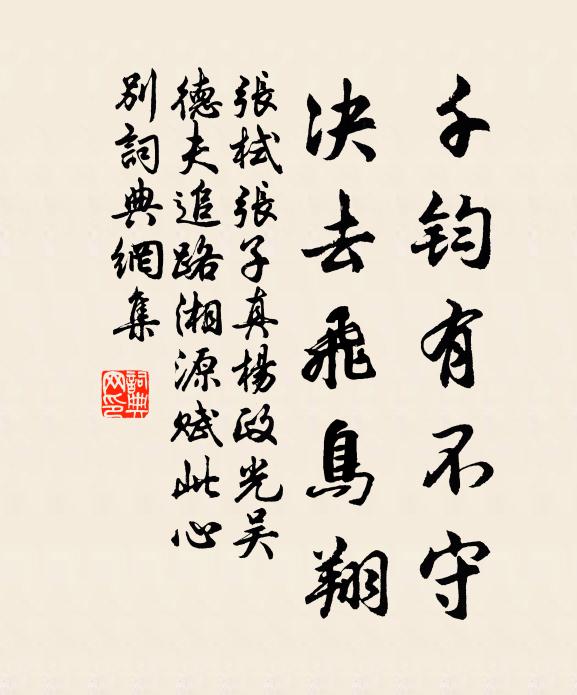 千鈞有不守
决去飛鳥翔
張栻張子真楊政光吴
德夫追路湘源赋此心
別詞典網集
詞典
网印